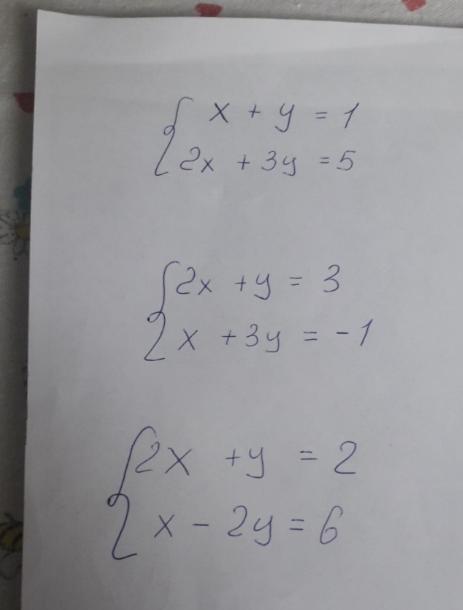 x + y = 1
2x + 3y = 5
2x + y = 3
x + 3y = -1
2x + y = 2
x - 2y = 6